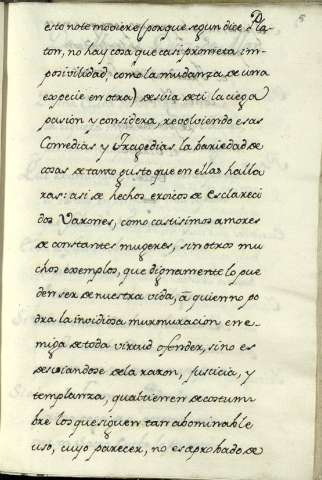 8
esto note moviere (porque segun dice Pla-
ton, no hay cosa que casi prometa im-
posivilidad, como la mudanza de una
especie en otra) desvia de ti la ciega
pasión y considera, revolviendo esas
Comedias y Tragedias la bariedad de
cosas de tanto gusto que en ellas halla
ras: asi de hechos eroicos de esclareci
dos Varones, como castisimos amores
de constantes mugeres, sin otros mu
chos exemplos, que dignamente lo pue
den ser de nuestra vida, á quien no po
dra la invidiosa murmuracion ene-
miga de toda virtud ofender, sino es
desviandose de la razon, justicia, y
templanza, qual tienen de costum
bre los que siguen tan abominable
uso, cuyo parecer, no es aprobado de